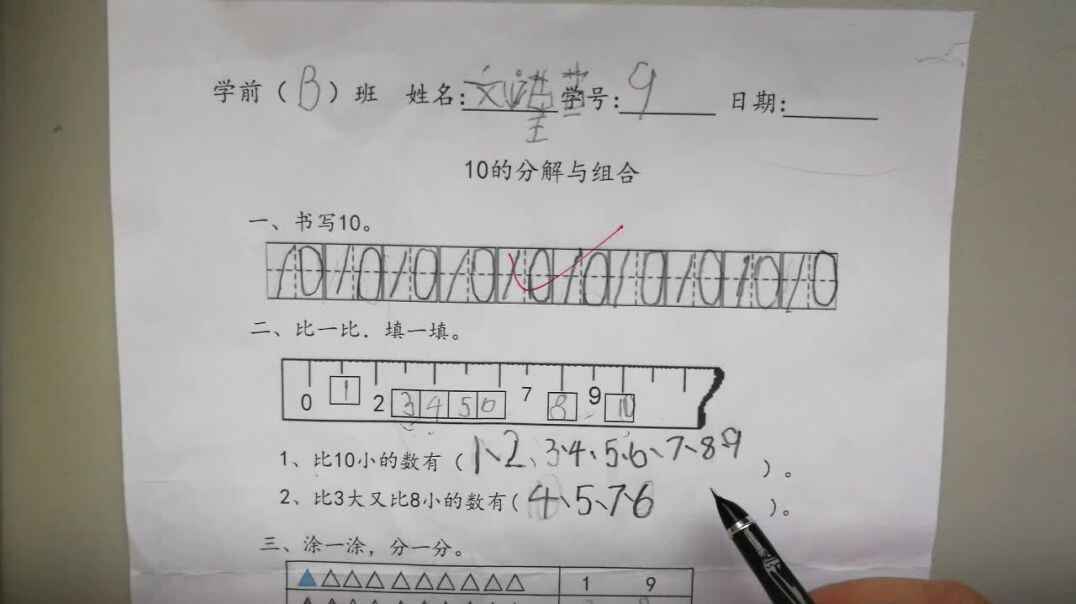 学前（B）班 姓名: 学号: 9 日期:
10的分解与组合
一、书写10。
10 10 10 10 10 10 10 10 10 10
二、比一比．填一填。
0 1 2 3 4 5 6 7 8 9 10
1、比10小的数有（1、2、3、4、5、6、7、8 9）。
2、比3大又比8小的数有(4、5、7、6)。
三、涂一涂，分一分。
1 9